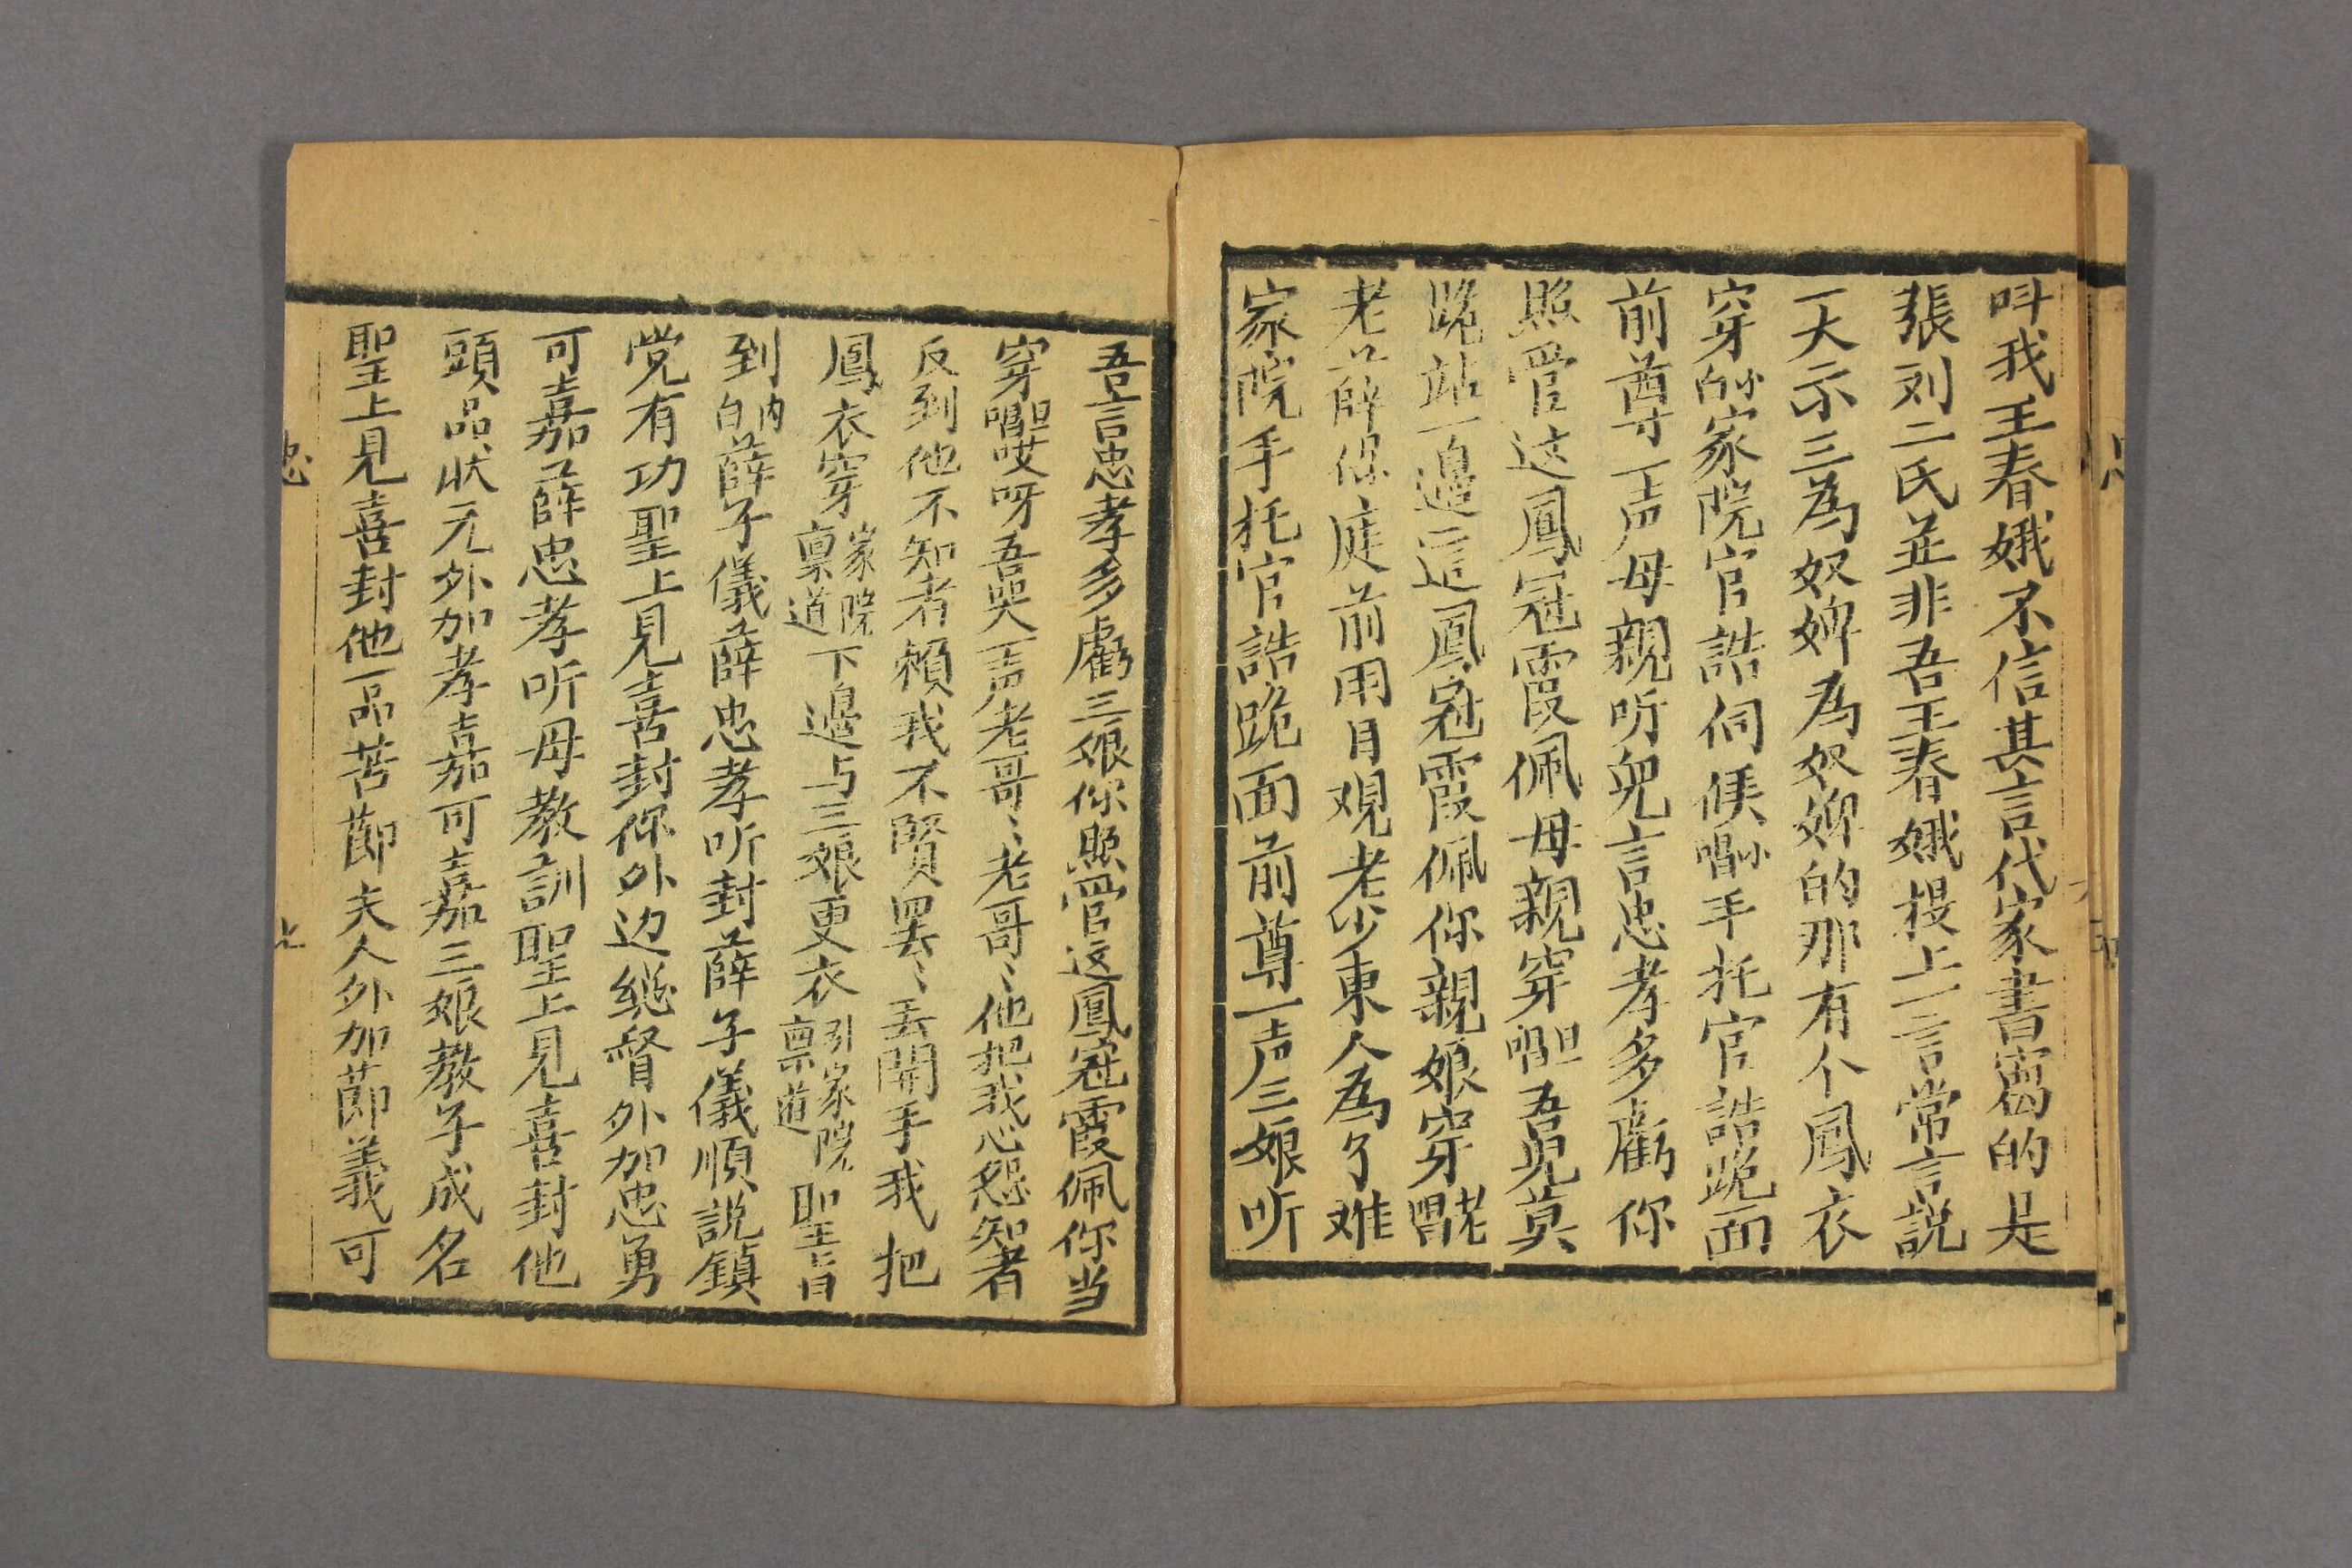 叫我王春娥不信其言代家書寫的是
張刘二氏並非吾王春娥提上一言常言説
一天不三為奴婢為奴婢的那有个鳳衣
穿小白家院官誥伺候小唱手托官誥跪面
前尊一声母親听兒言忠孝多虧你
照管这鳳冠霞佩母親穿旦唱吾兒莫
跪站一邉這鳳冠霞佩你親娘穿老唱
老薛保庭前用目观老少東人為了难
家院手托官誥跪面前尊一声三娘听
吾言忠孝多虧三娘你照管这鳳冠霞佩你当
穿旦唱哎呀吾哭一声老哥〻老哥〻他把我心怨知者
反到他不知者頼我不賢罢〻丢開手我把
鳳衣穿家院禀道下邉与三娘更衣引家院禀道聖旨
到内白薛子儀薛忠孝听封薛子儀順説鎮
党有功聖上見喜封你外边緫督外加忠勇
可嘉薛忠孝听母教訓聖上見喜封他
頭品状元外加孝嘉可嘉三娘教子成名
聖上見喜封他一品苦節夫人外加節義可
忠
七